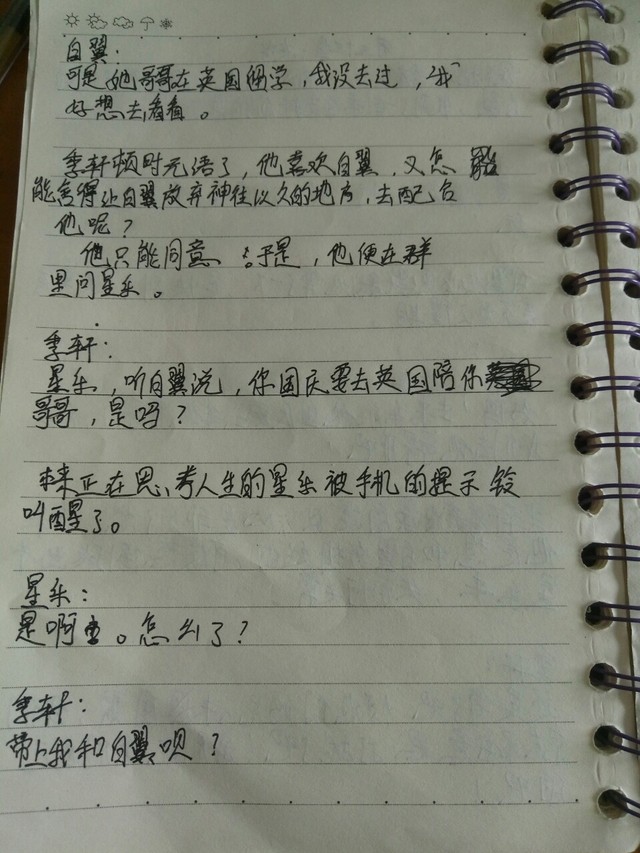 白翼：
可是她哥哥在英国留学，我没去过，我
好想去看看。
季轩顿时无语了，他喜欢白翼，又怎
能舍得让白翼放弃神往以久的地方，去配合
他呢？
他只能同意。于是，他便在群
里问星乐。
季轩：
星乐，听白翼说，你国庆要去英国陪你
哥哥，是吗？
本来正在思考人生的星乐被手机的提示铃
叫醒了。
星乐：
是啊。怎么了？
季轩：
带上我和白翼呗？